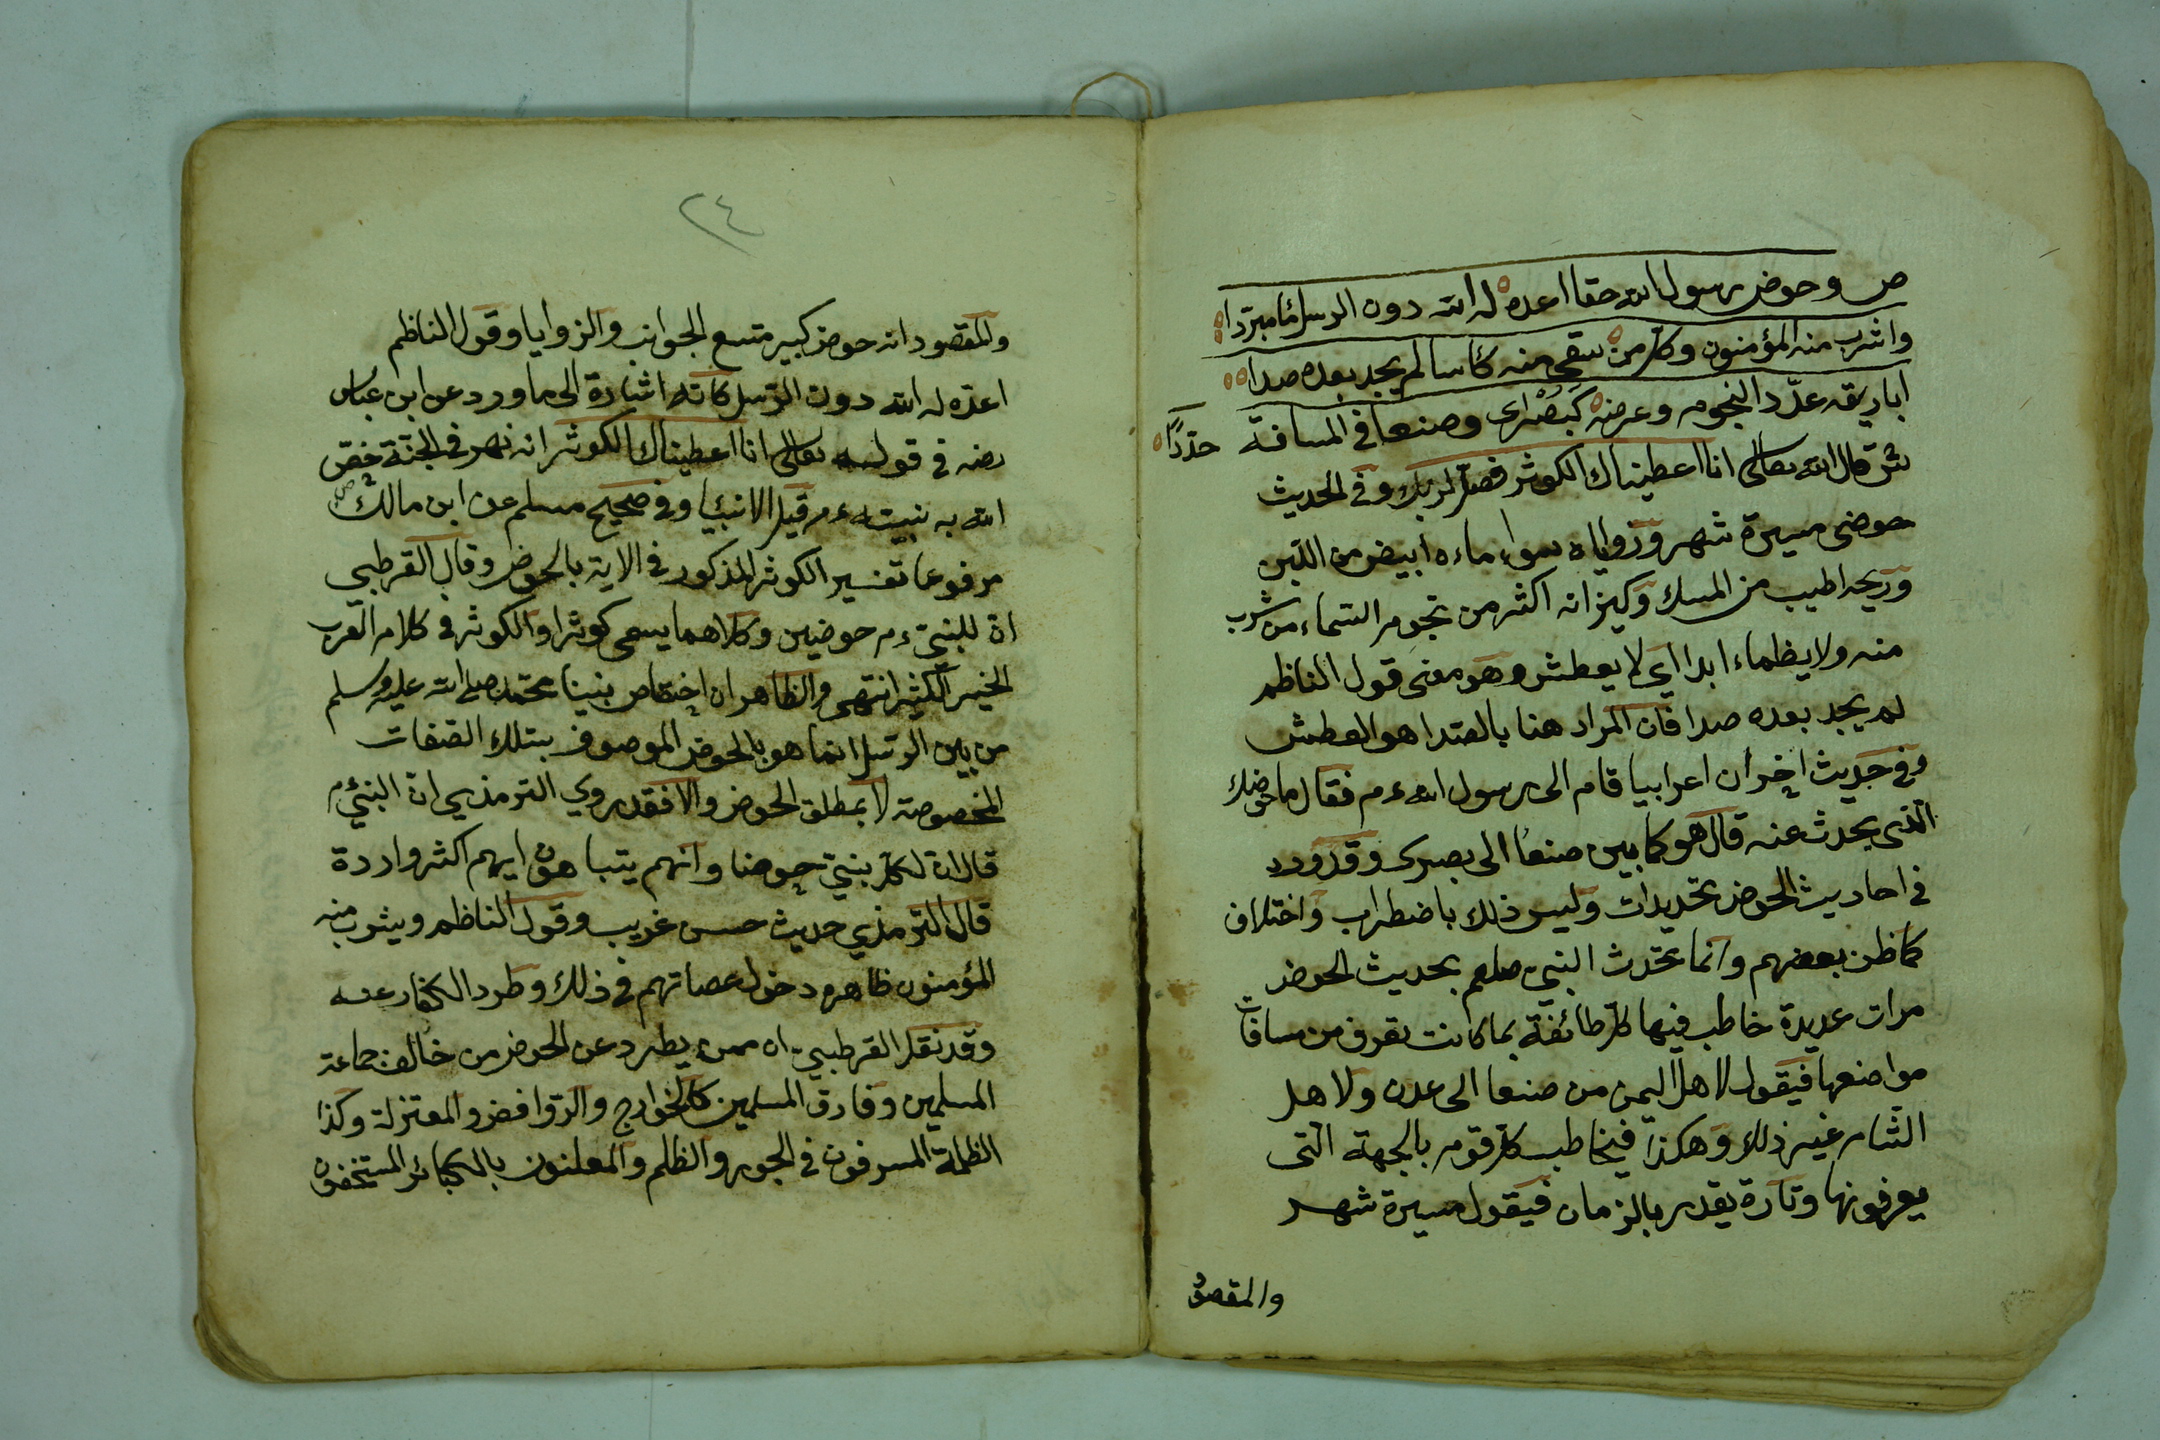 ص وحوض رسول الله حقا اعده له الله دون الرسل ما مبردا
واشرب منه المؤمنون وكل من سقي منه كاسا لم يجد بعده صدا
اباريقه عدّد النجوم وعرضه كبصرى وصنعا في المسافة حددًا
ش قال الله تعالى انا اعطيناك الكوثر فصل لربك وفي الحديث
حوضى مسيرة شهر وزواياه سواء ماءه ابيض من اللبن
وريحه اطيب من المسك وكيزانه اكثر من نجوم السماء من شرب
منه ولا يظماء ابدا اي لا يعطش وهو معنى قول الناظم
لم يجد بعده صدا فان المراد هنا بالصدا هو العطش
وفي حديث اخر أن اعرابيا قام الى رسول الله ءم فقال ما حوضك
الذى يحدث عنه قال هو كما بين صنعا الى بصرى وقد ورد
في احاديث الحوض تحديدات وليس ذلك باضطراب واختلاف
كما ظن بعضهم وانما تحدث النبي صلعم بحديث الحوض
مرات عديدة خاطب فيها كل طائفة بما كانت تعرف من مسافات
مواضعها فيقول لاهل اليمن من صنعا الى عدن ولاهل
الشام غير ذلك وهكذا فيخاطب كل قوم بالجهة التى
يعرفونها وتارة يقدر بالزمان فيقول مسيرة شهر
والمقصود
٢٤
والمقصود انه حوض كبير متسع الجوانب والزوايا وقول الناظم
اعده له الله دون الرسل كانه اشارة الى ما ورد عن ابن عباس
رضه في قوله تعالى انا اعطيناك الكوثر انه نهر في الجنة خص
الله به نبيه ءم قبل الانبيا وفي صحيح مسلم عن ابن مالك رض
مرفوعا تفسير الكوثر المذكور في الاية بالحوض وقال القرطبي
ان للنبي ءم حوضين وكلاهما يسمى كوثرا والكوثر في كلام العرب
الخير الكثير انتهى والظاهر ان اختصاص نبينا محمد صلى الله عليه وسلم
من بين الرسل انما هو بالحوض الموصوف بتلك الصفات
المخصوصة لا بمطلق الحوض والا فقد روي الترمذي ان النبي ءم
قال ان لكل نبي حوضا وانهم يتباهون ايهم اكثر واردة
قال الترمذي حديث حسن غريب وقول الناظم ويشرب منه
المؤمنون ظاهره دخول عصاتهم في ذلك وطرد الكفار عنه
وقد نقل القرطبي ان ممن يطرد عن الحوض من خالف جماعة
المسلمين وفارق المسلمين كالخوارج والروافض والمعتزلة وكذا
الظلمة المسرفون في الجور والظلم والمعلنون بالكبائر المستخفون